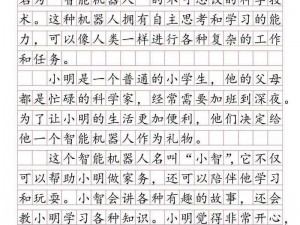 名为“智能机器人”的不可思议的科学技
术。这种机器人拥有自主思考和学习的能
力，可以像人类一样进行各种复杂的工作
和任务。
小明是一个普通的小学生，他的父母
都是忙碌的科学家，经常需要加班到深夜。
为了让小明的生活更加便利，他们决定给
他一个智能机器人作为礼物。
这个智能机器人名叫“小智”，它不仅
可以帮助小明做家务，还可以陪伴他学习
和玩耍。小智会讲各种有趣的故事，还会
教小明学习各种知识。小明觉得非常开心，